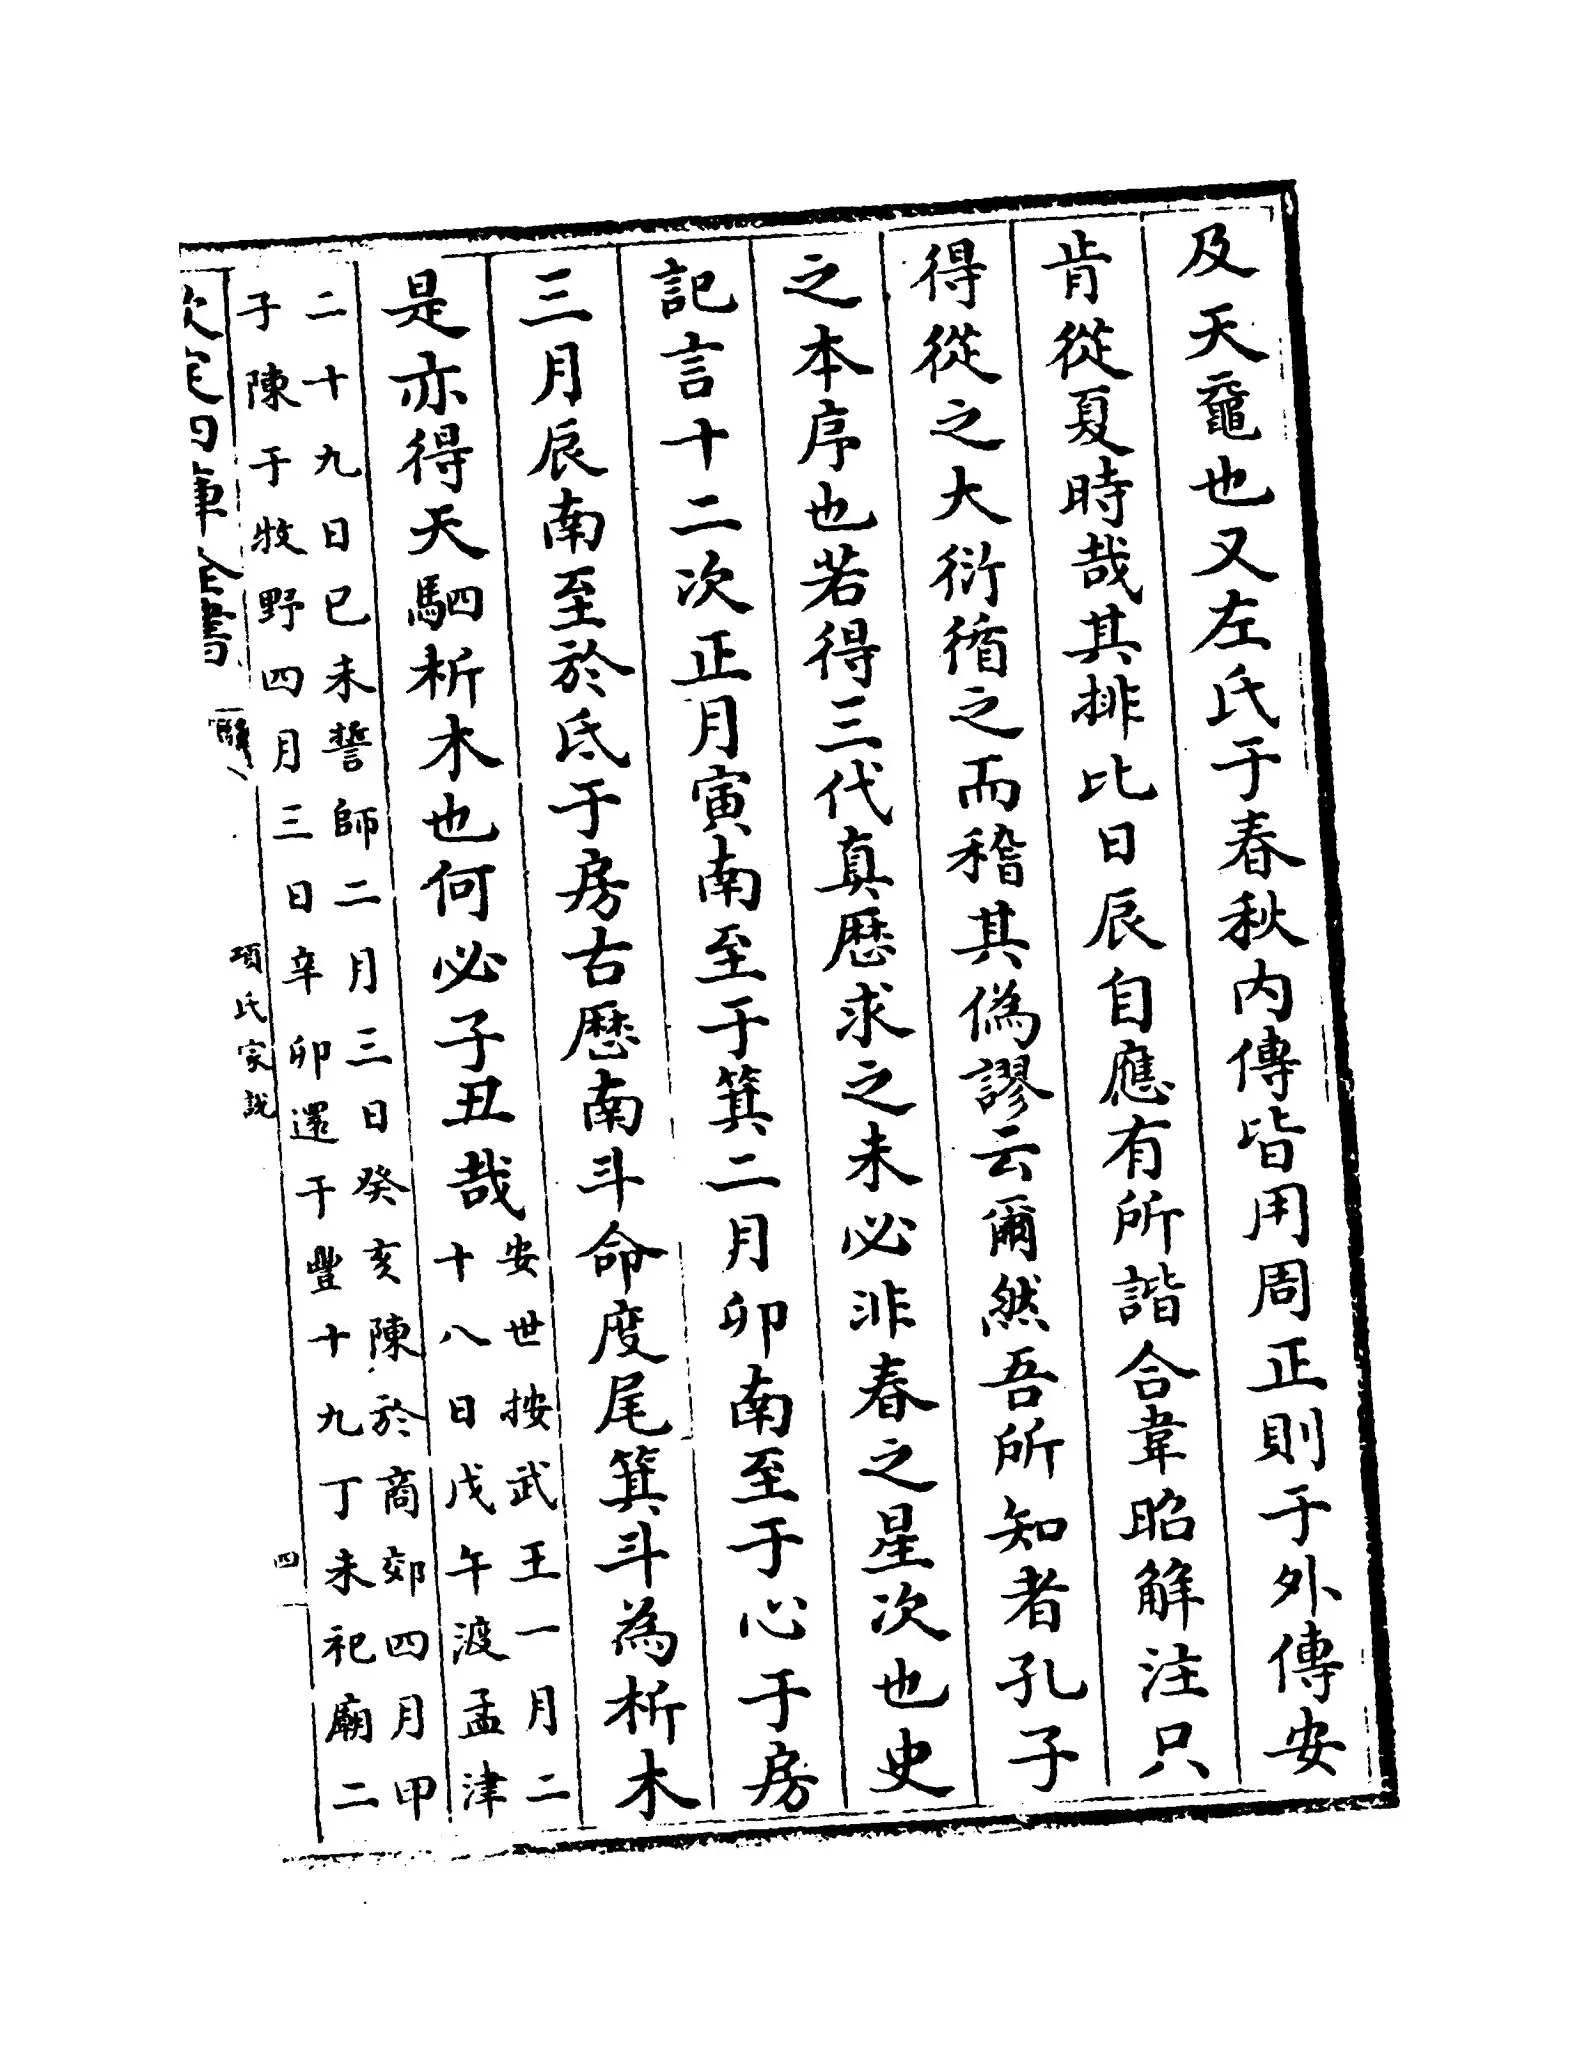 及天黿也又左氏于春秋内傳皆用周正則于外傳安
肯從夏時哉其排比日辰自應有所諧合韋昭解注只
得從之大衍循之而稽其偽謬云爾然吾所知者孔子
之本序也若得三代真厯求之未必非春之星次也史
記言十二次正月寅南至于箕二月卯南至于心于房
三月辰南至於氐于房古厯南斗命度尾箕斗為析木
是亦得天駟析木也何必子丑哉安世按武王一月二
十八日戊午渡孟津
二十九日已未誓師二月三日癸亥陳於商郊四月甲
子陳于牧野四月三日辛卯還于豐十九丁未祀廟二
欽定四庫全書
項氏家說
四